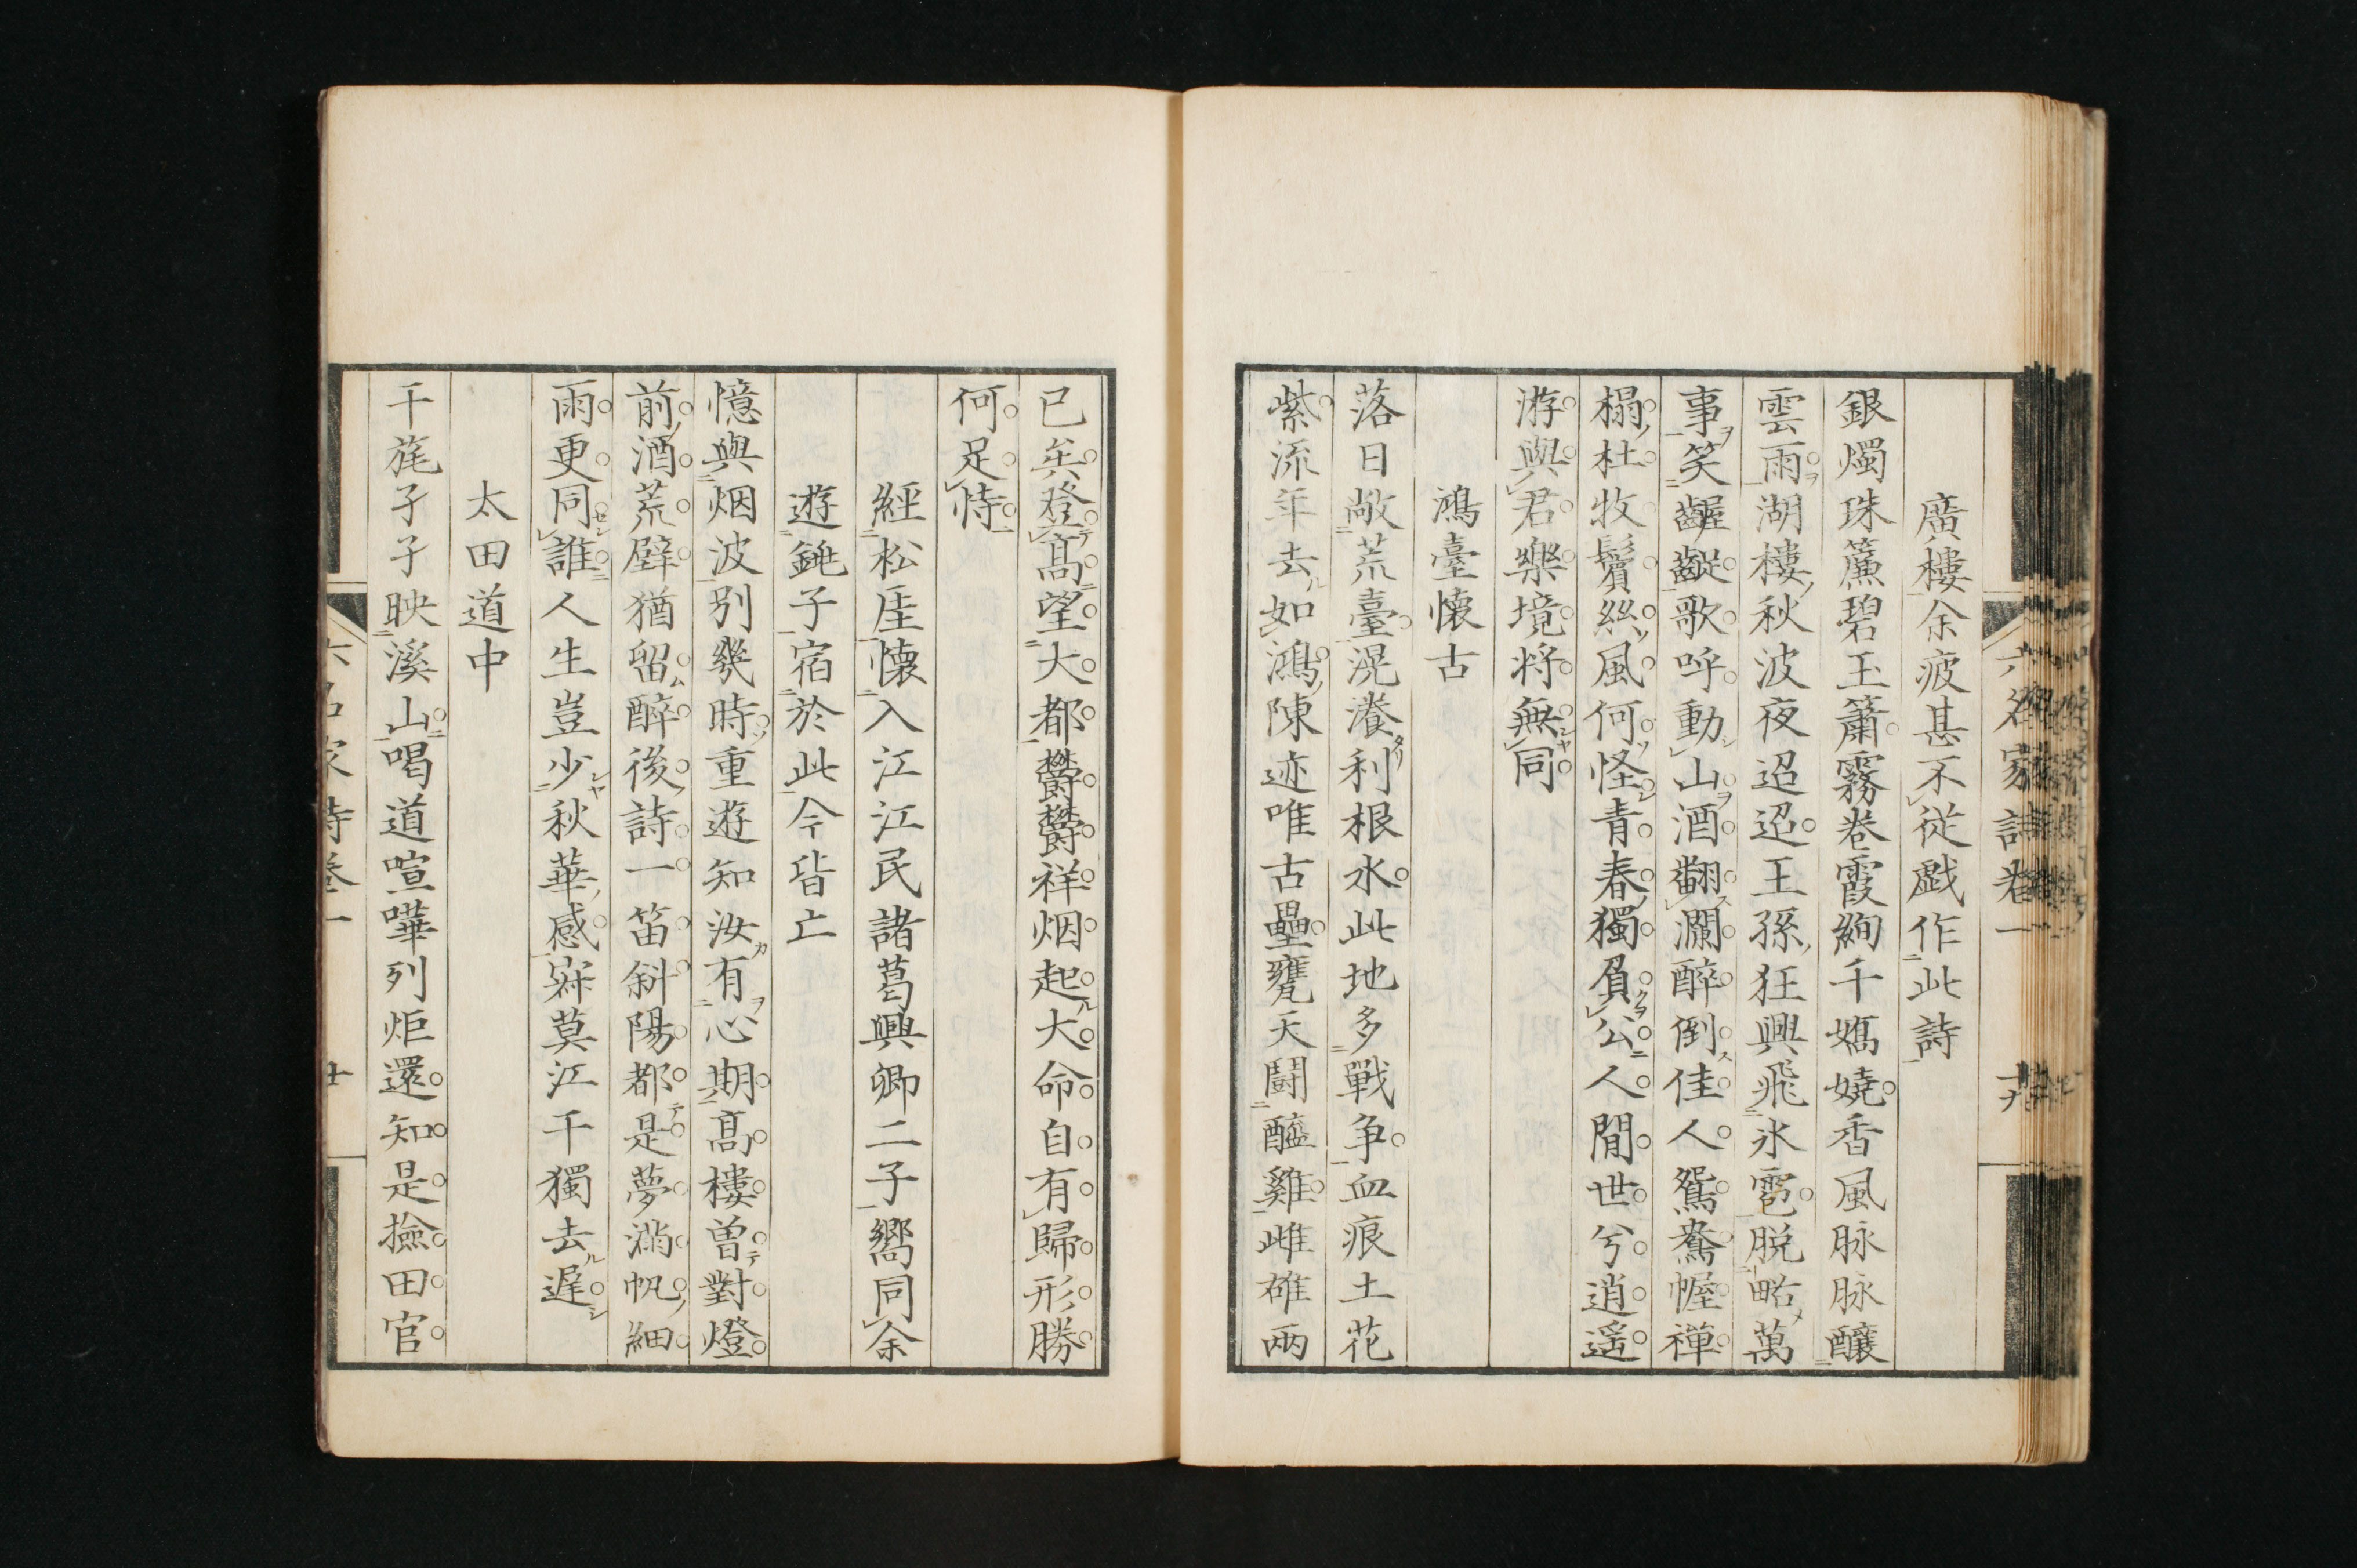 六名家詩卷一
廣樓余疲甚不從戲作此詩
銀燭珠簾碧玉簫霧卷霞絢千嬌嬈香風脉脉釀
雲雨湖樓秋波夜迢迢王孫狂興飛氷雹脱略萬
事笑齷齪歌呼動山酒翻瀾醉倒佳人鴛鴦幄禪
榻杜牧鬢絲風何怪青春獨負公人間世兮逍遥
游與君樂境將無同
鴻臺懷古
落日敞荒臺滉瀁利根水此地多戰争血痕土花
紫流年去如鴻陳迹唯古壘甕天鬪醯雞雌雄兩
已矣登髙望大都欝欝祥烟起大命自有歸形勝
何足恃
經松厓懷入江江民諸葛興卿二子嚮同余
遊銚子宿於此今皆亡
憶與烟波別幾時重遊知汝有心期髙樓曽對燈
前酒荒壁猶留醉後詩一笛斜陽都是夢滿帆細
雨更同誰人生豈少秋華感寂莫江干獨去遲
太田道中
干旄孑孑映溪山喝道喧嘩列炬還知是撿田官
六名家詩卷一
廿